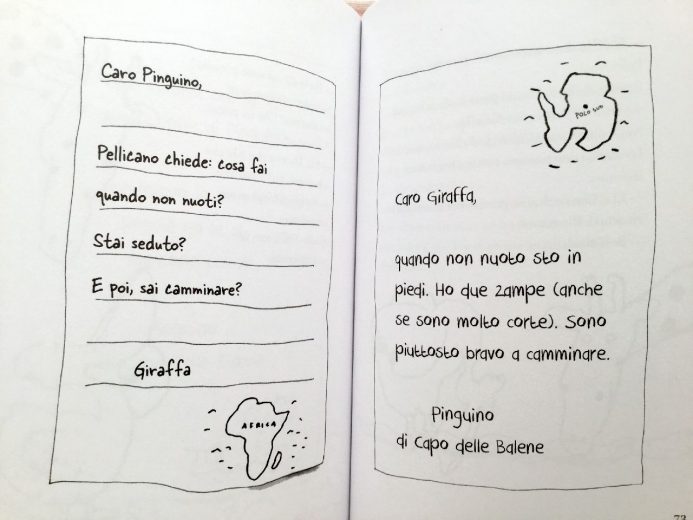 Caro Pinguino,
Pellicano chiede: cosa fai
quando non nuoti?
Stai seduto?
E poi, sai camminare?
Giraffa
AFRICA
POLO SUD
Caro Giraffa,
quando non nuoto sto in
piedi. Ho due zampe (anche
se sono molto corte). Sono
piuttosto bravo a camminare.
Pinguino
di Capo delle Balene